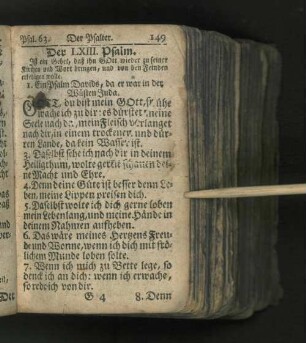 Psal. 63. Der Psalter. 149
Der LXIII. Psalm.
Ist ein Gebet, daß ihn GOtt wieder zu seiner
Kirchen und Wort bringen, und von den Feinden
erledigen wolle.
1. Ein Psalm Davids, da er war in der
Wüsten Juda.
GOTT, du bist mein GOtt, frühe
wache ich zu dir: es dürstet meine
Seele nach dir, mein Fleisch verlanget
nach dir, in einem trockenen und dür-
ren Lande, da kein Wasser ist.
3. Daselbst sehe ich nach dir in deinem
Heiligthum, wolte gerne schauen dei-
ne Macht und Ehre.
4. Denn deine Güte ist besser denn Le-
ben, meine Lippen preisen dich.
5. Daselbst wolte ich dich gerne loben
mein Lebenlang, und meine Hände in
deinem Nahmen aufheben.
6. Das wäre meines Hertzens Freu-
de und Wonne, wenn ich dich mit frö-
lichem Munde loben solte.
7. Wenn ich mich zu Bette lege, so
denck ich an dich: wenn ich erwache,
so rede ich von dir.
G 4 8. Denn